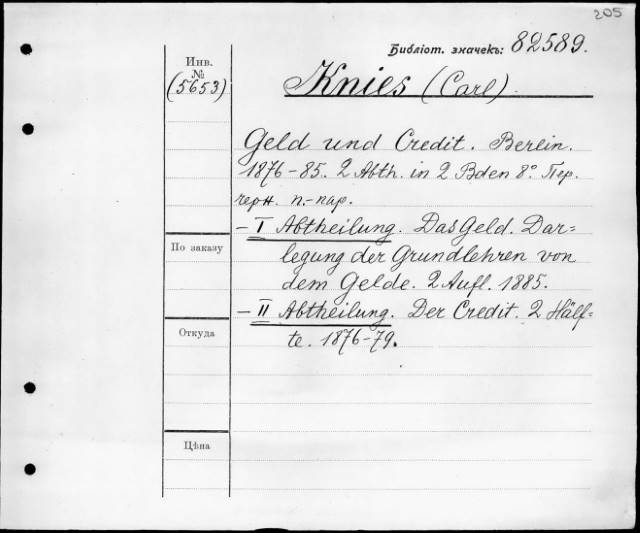 205
Библіот. значекъ: 82589.
Инв.
№
(5653)
Knies (Carl).
Geld und Credit. Berlin.
1876-85. 2 Abth. in 2 Bden 8° Пер.
черн. п.-пар.
- I Abtheilung. Das Geld. Dar=
legung der Grundlehren von
dem Gelde. 2 Aufl. 1885.
- II Abtheilung. Der Credit. 2 Hälf=
te. 1876-79.
По заказу
Откуда
Цѣна